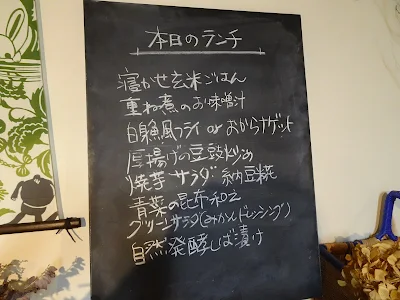 本日のランチ
寝かせ玄米ごはん
重ね煮のお味噌汁
白身魚風フライ or おからナゲット
厚揚げの豆鼓炒め
焼芋サラダ 納豆糀
青菜の昆布和え
グリーンサラダ(みかんドレッシング)
自然発酵しば漬け